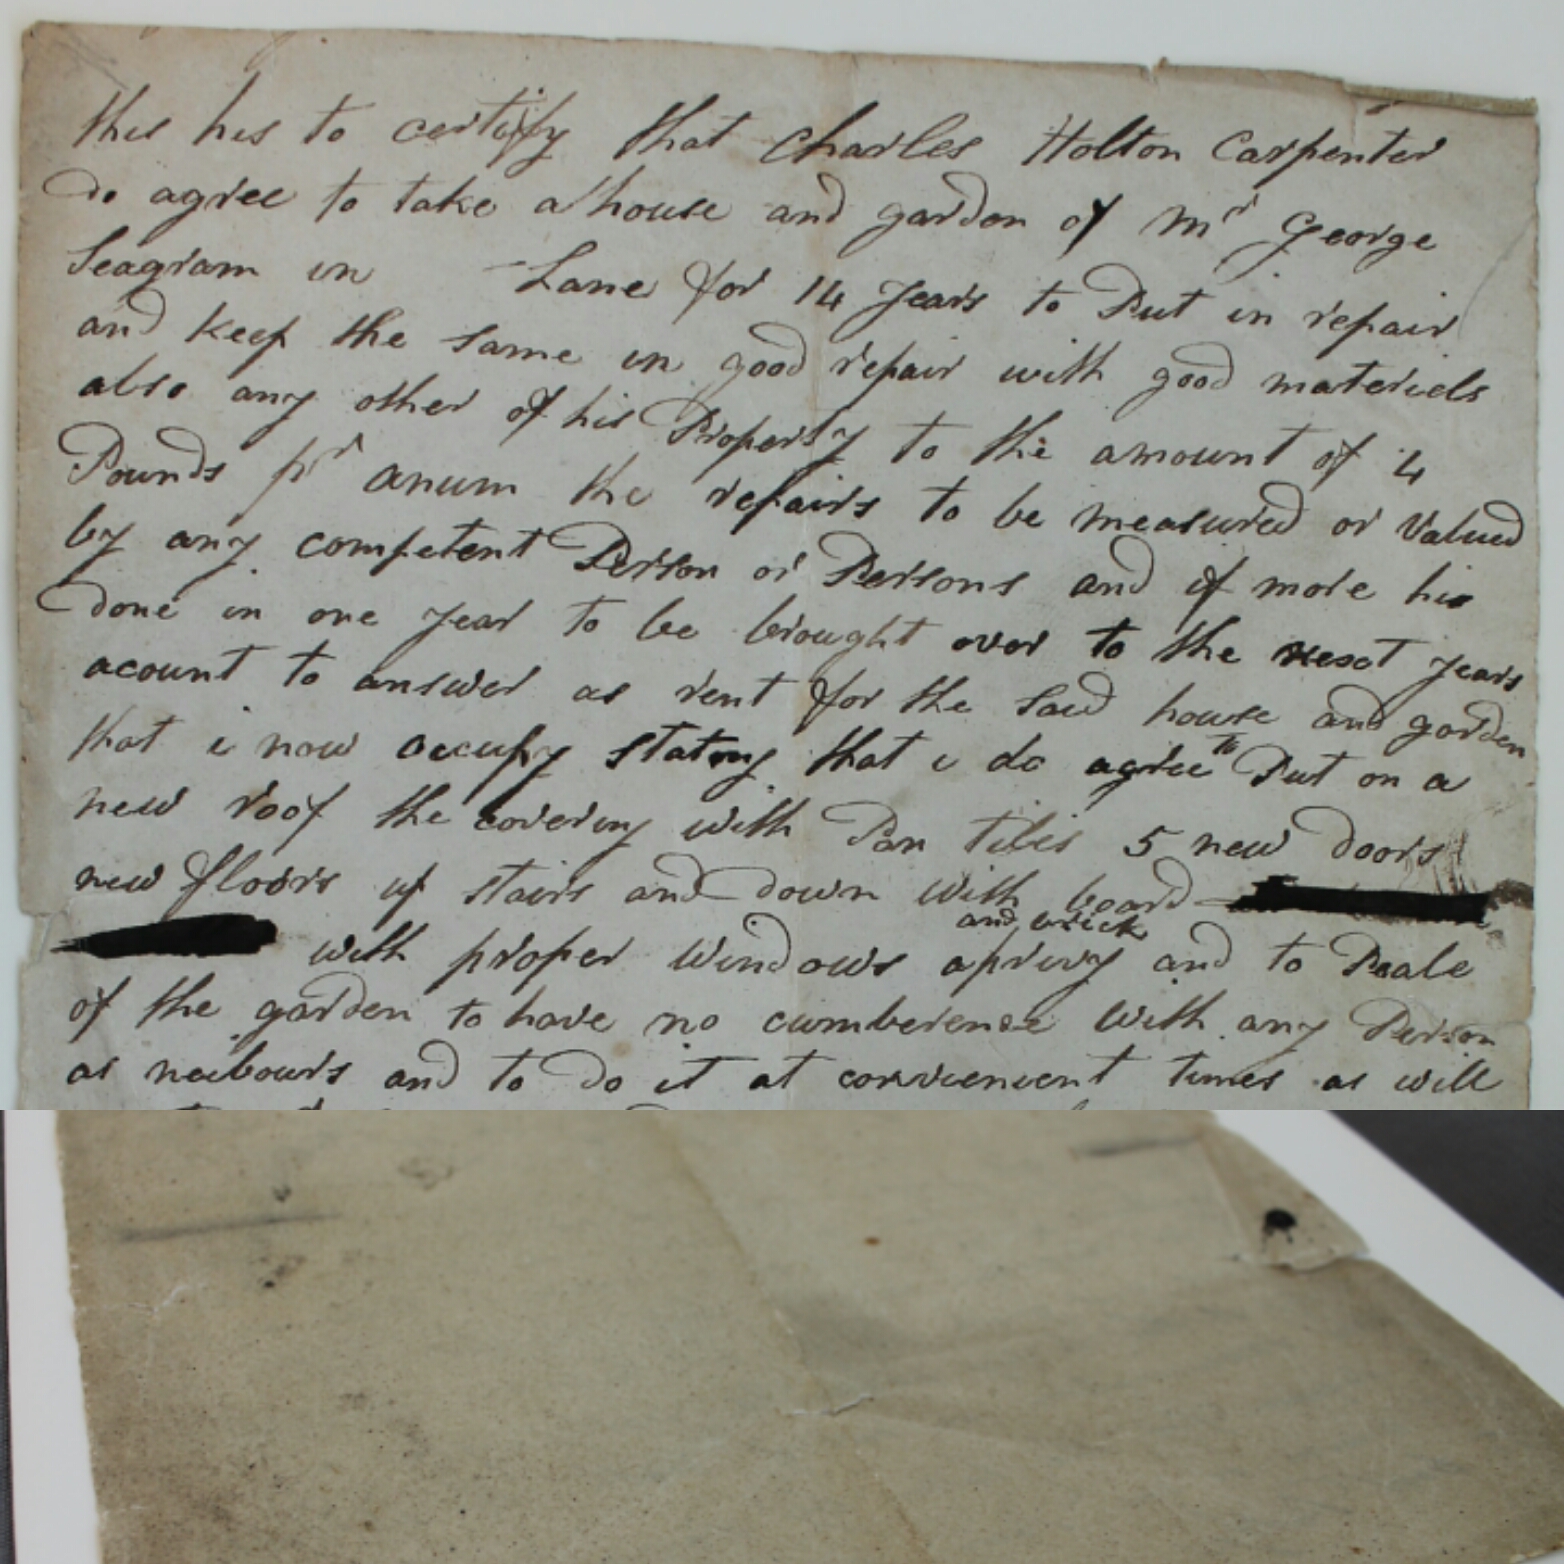 this his to certify that Charles Holton Carpenter
do agree to take a house and garden of Mr George
Seagram in Lane for 14 years to Put in repair
and keep the same in good repair with good materiels
also any other of his Property to the amount of 4
Pounds pr anum the repairs to be measured or Valued
by any competent Person or Persons and if more his
done in one year to be brought over to the next years
acount to answer as rent for the said house and garden
that i now occupy stating that i do agree to Put on a
new roof the covering with Pan tiles 5 new doors
new floors up stairs and down with board
and brick
with proper windows a privy and to Peale
of the garden to have no cumberence with any Person
as neibours and to do it at convienient times as will